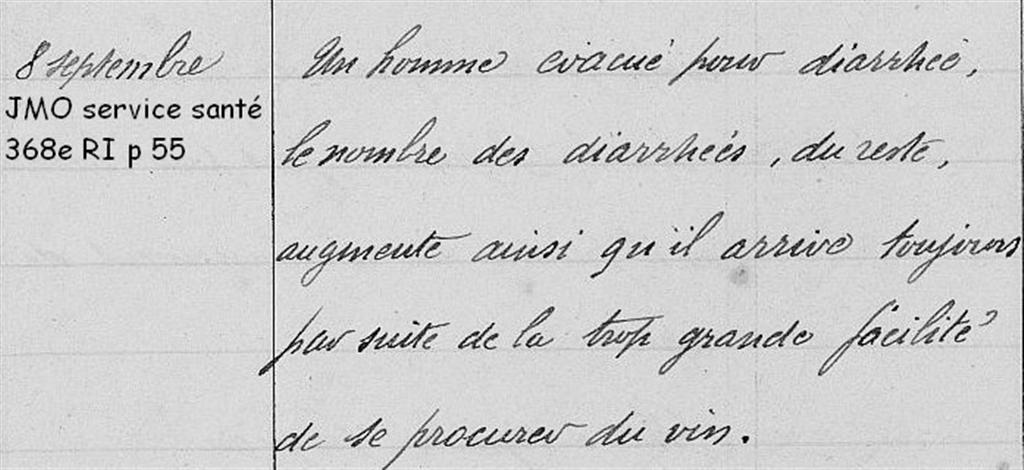 8 septembre
JMO service santé
368e RI p 55
Un homme évacué pour diarrhée,
le nombre des diarrhées, du reste,
augmente ainsi qu'il arrive toujours
par suite de la trop grande facilité
de se procurer du vin.